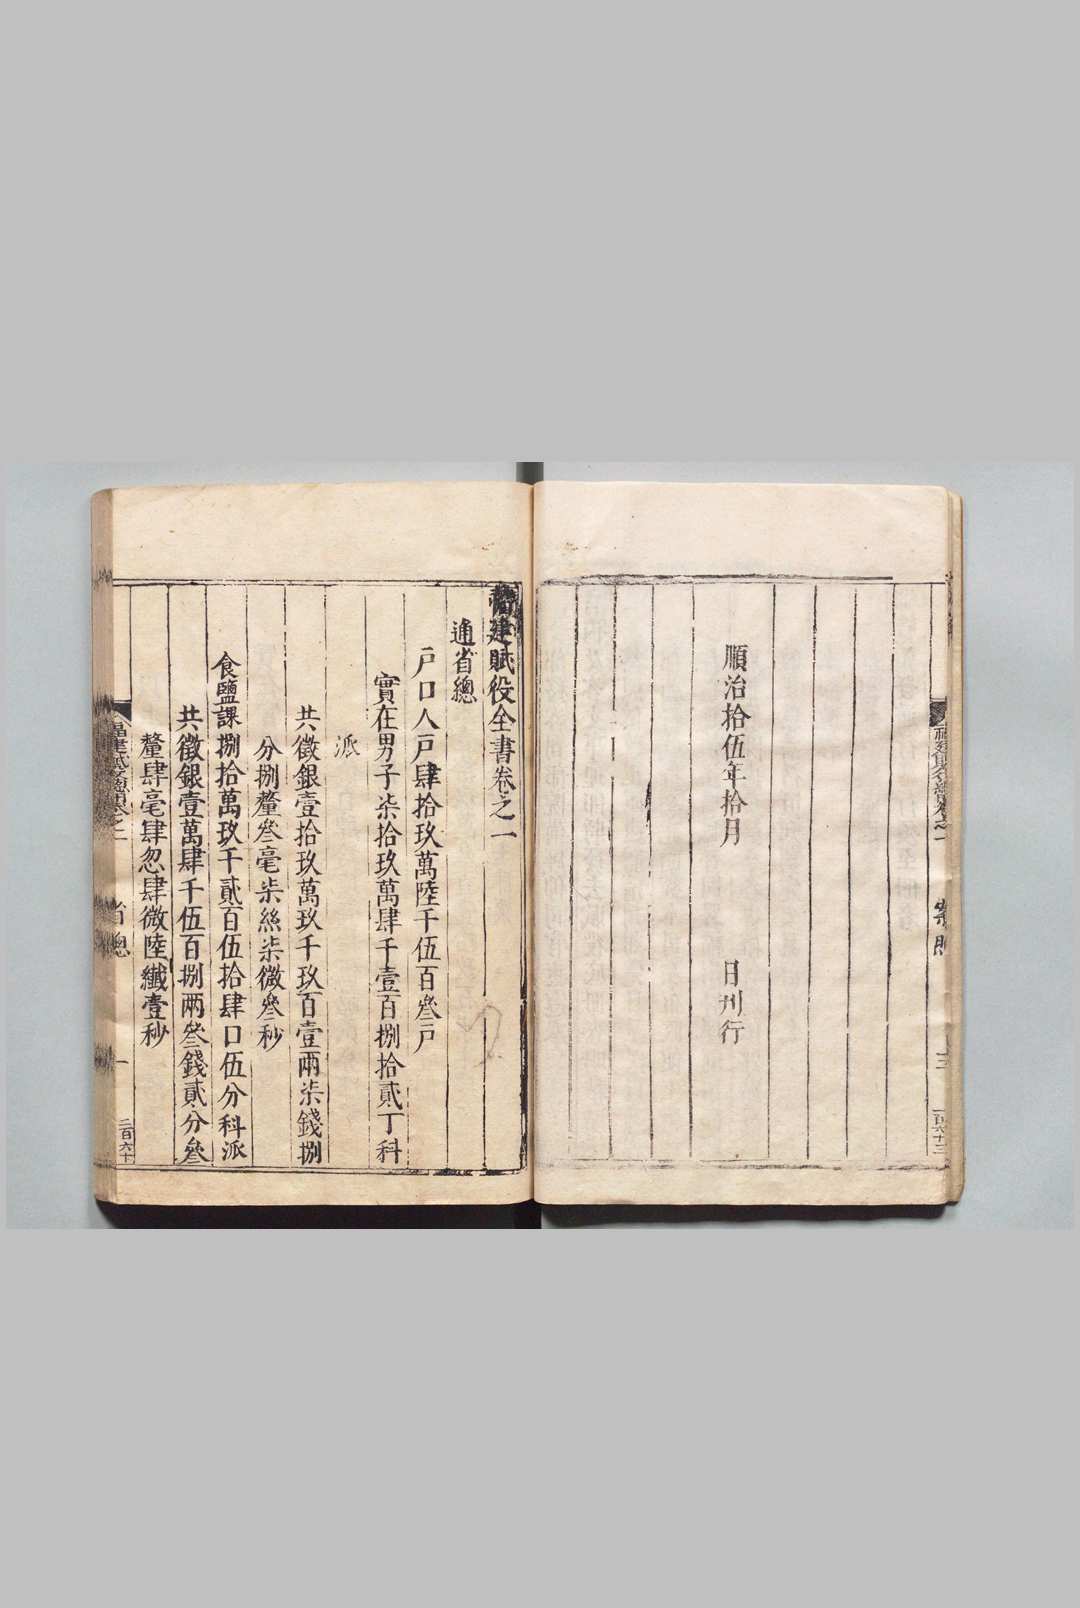 順治拾伍年拾月　　　日刊行
福建賦役全書卷之一
通省總
戶口人戶肆拾玖萬陸千伍百叄戶
實在男子柒拾玖萬肆千壹百捌拾貳丁科
派
共徵銀壹拾玖萬玖千玖百壹兩柒錢捌
分捌釐叄毫柒絲柒微叄秒
食鹽課捌拾萬玖千貳百伍拾肆口伍分科派
共徵銀壹萬肆千伍百捌兩叄錢貳分叄
釐肆毫肆忽肆微陸纖壹秒
省總
一
二百六十